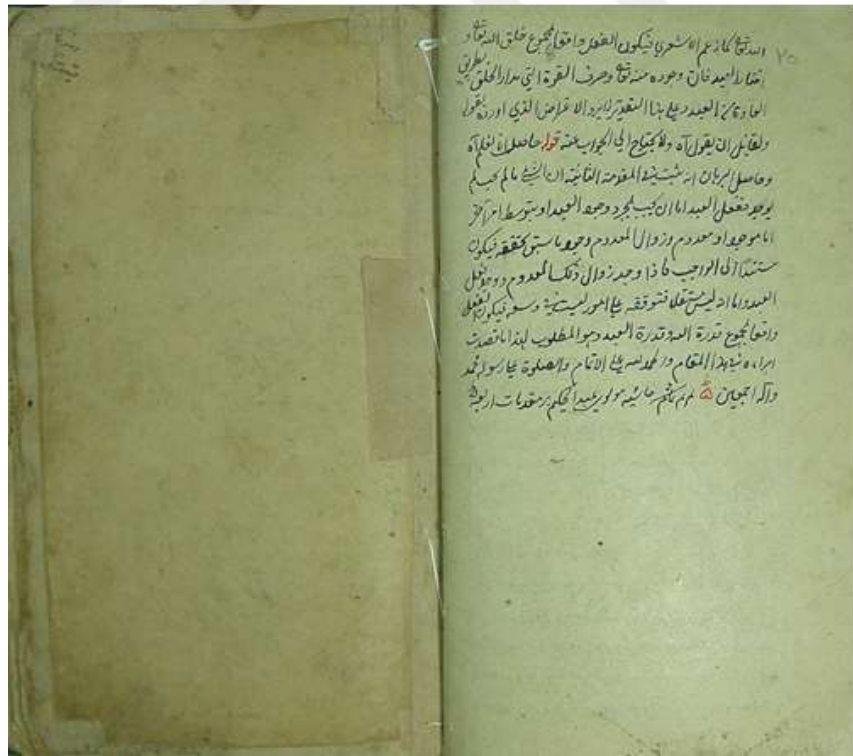 الله تع كما زعم الاشعري فيكون الفعل واقعا بمجموع خلق الله تع و ٢٥
اختيار العبد فان وجوده منه تع وصرف القدرة التي مدار الخلق بطريق
العادة من العبد وعلى هذا التقدير لا يرد الاعتراض الذي اورده بقوله
ولقائل ان يقول آه ولا يحتاج الى الجواب عنه قوله حاصل آه
وحاصل البرهان انه ثبت في المقدمة الثانية ان الشيء ما لم يجب لم
يوجد ففعل العبد اما ان يجب بمجرد وجود العبد او بتوسط امر آخر
اما موجود او معدوم وزوال المعدوم وجود ما سبق فيكون
مستندا الى الواجب فاذا وجد زوال ذلك المعدوم وجد فعل
العبد واما انه ليس مستقلا فتوقفه على امور ليست في وسعه فيكون الفعل
واقعا بمجموع قدرة الله وقدرة العبد وهو المطلوب هذا ما قصدت
ايراده في هذا المقام والحمد لله على الاتمام والصلوة على رسوله محمد
وآله اجمعين حاشيه مولوي عبد الحكيم بر مقدمات اربعه